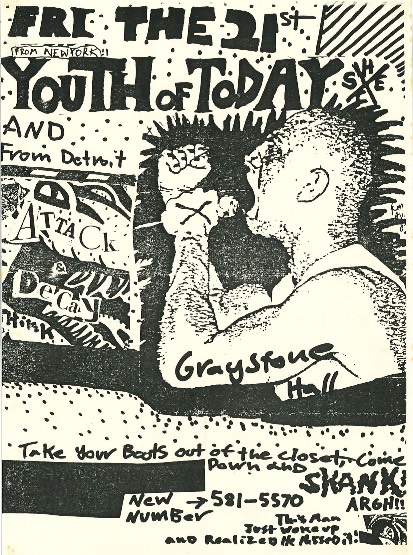 FRI THE 21st
FROM NEW YORK!!
YOUTH OF TODAY
S X E
AND
From Detroit
ATTACK
DECAY
THINK
Graystone
Hall
Take Your Boots out of the closet, Come
Down and
SKANK!
ARGH!!
New → 581-5570
NUMBER
This Man
Just woke up
and Realized He Missed it!